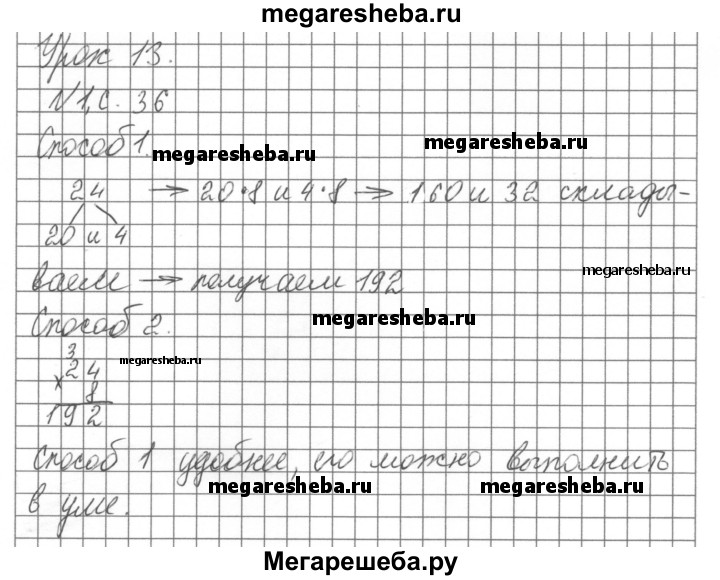 megaresheba.ru
Урок 13.
N1, с. 36
Способ 1.
megaresheba.ru
megaresheba.ru
24 → 20·8 и 4·8 → 160 и 32 склады-
20 и 4
megaresheba.ru
ваем → получаем 192
Способ 2.
megaresheba.ru
3
24
megaresheba.ru
× 8
192
Способ 1 удобнее, его можно выполнить
megaresheba.ru
megaresheba.ru
в уме.
Мегарешеба.ру